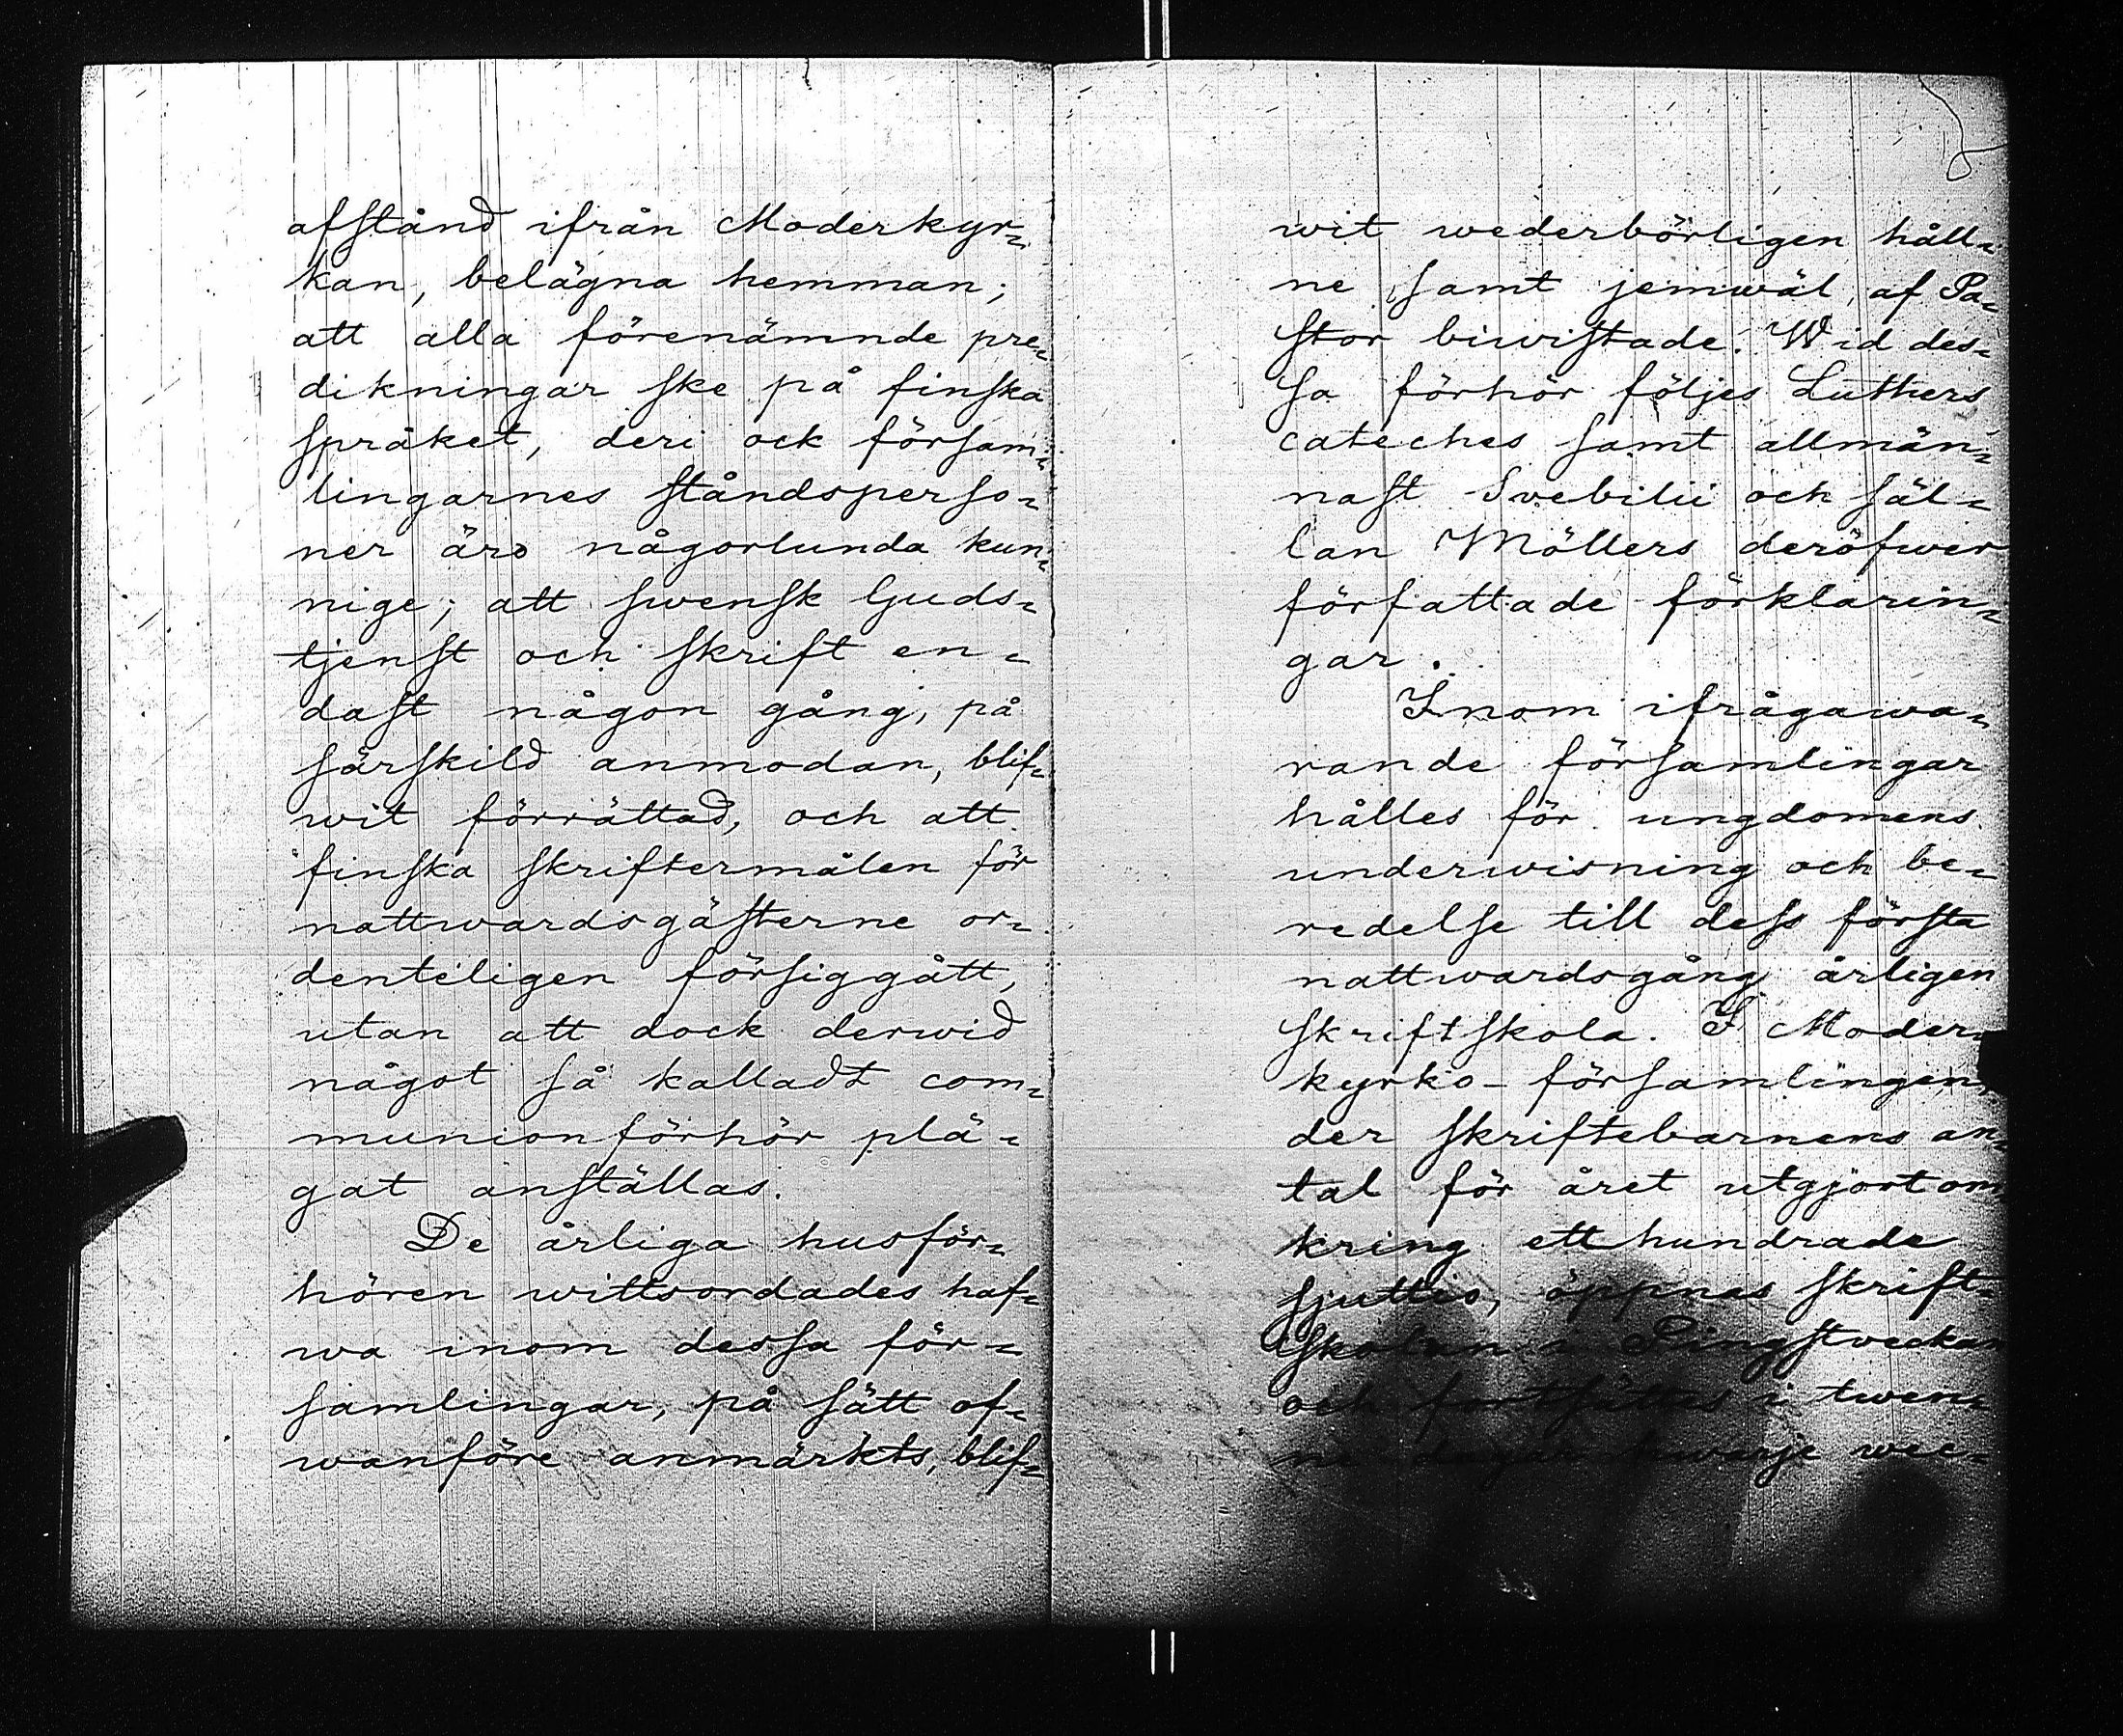 afstånd ifrån Moderkyr-
kan, belägna hemman;
att alla förenämnde pre-
dikningar ske på finska
språket, deri ock försam-
lingarnes ståndsperso-
ner äro någorlunda kun-
nige; att swensk Guds-
tjenst och skrift en-
dast någon gång, på
särskild anmodan, blif-
wit förrättad, och att
finska skriftermålen för
nattwardsgästerne or-
denteligen försiggått,
utan att dock derwid
något så kalladt com-
munionförhör plä-
gat anställas.
De årliga husför-
hören wittsordades haf-
wa inom dessa för-
samlingar, på sätt of-
wanföre anmärkts, blif-
wit wederbörligen håll-
ne samt jemwäl af Pa-
stor biwistade. Wid des-
sa förhör följes Luthers
cateches samt allmän-
nast Svebilii och säl-
lan Möllers deröfwer
författade förklarin-
gar.
Inom ifrågawa-
rande församlingar
hålles för ungdomens
underwisning och be-
redelse till dess första
nattwardsgång årligen
skriftskola. I Moder-
kyrko-församlingen,
der skriftebarnens an-
tal för året utgjort om-
kring ett hundrade
sjuttio, öppnas skrift-
skolan i Pingstveckan
och fortsättes i twen-
ne dagar hwarje wec-